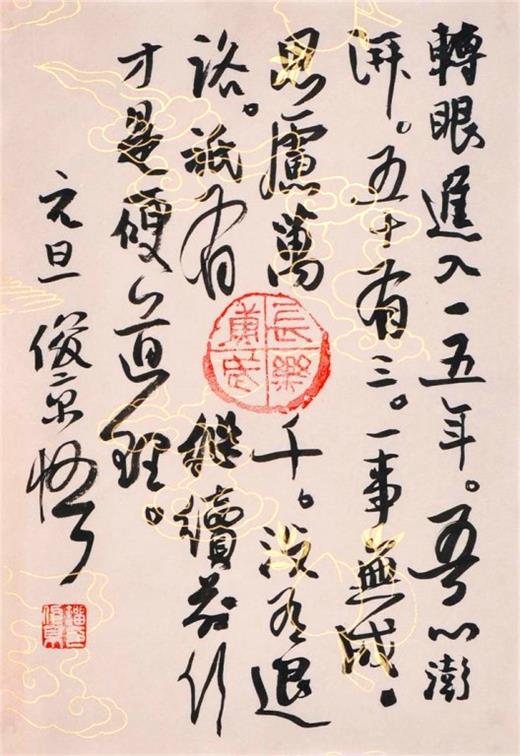 轉眼進入一五年。吾心澎
湃。五十有三。一事無成。
思慮萬千。没有退
路。祇有繼續前行
才是硬道理。
元旦 俊京悟了
長樂